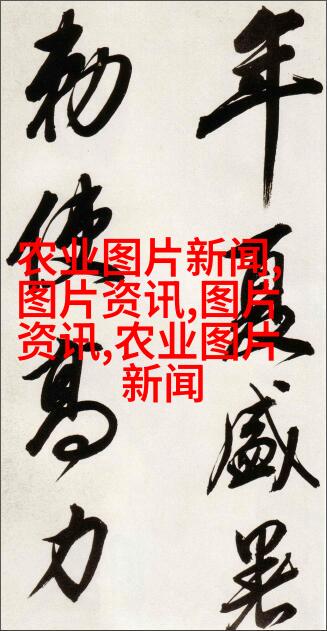 年夏盛暑
勅使高力
农业图片新闻,
图片资讯,图片
资讯,农业图片
新闻